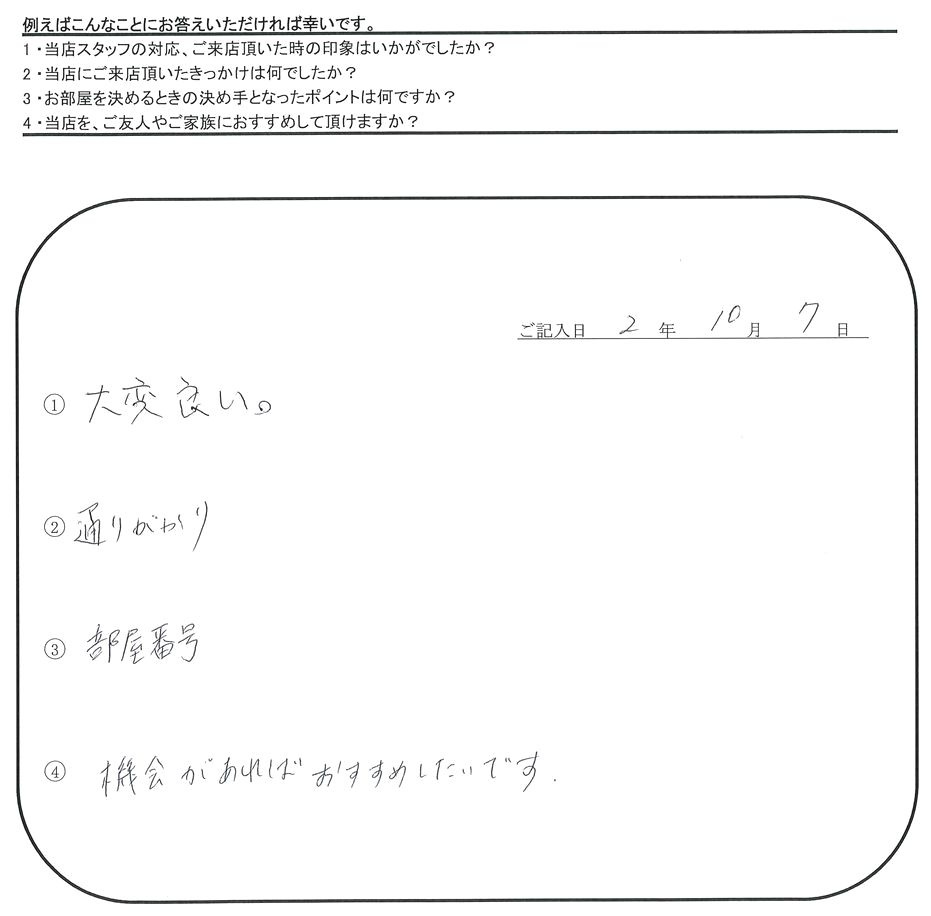 例えばこんなことにお答えいただければ幸いです。
1・当店スタッフの対応、ご来店頂いた時の印象はいかがでしたか？
2・当店にご来店頂いたきっかけは何でしたか？
3・お部屋を決めるときの決め手となったポイントは何ですか？
4・当店を、ご友人やご家族におすすめして頂けますか？
ご記入日 2 年 10 月 7 日
① 大変良い。
② 通りがかり
③ 部屋番号
④ 機会があればおすすめしたいです.